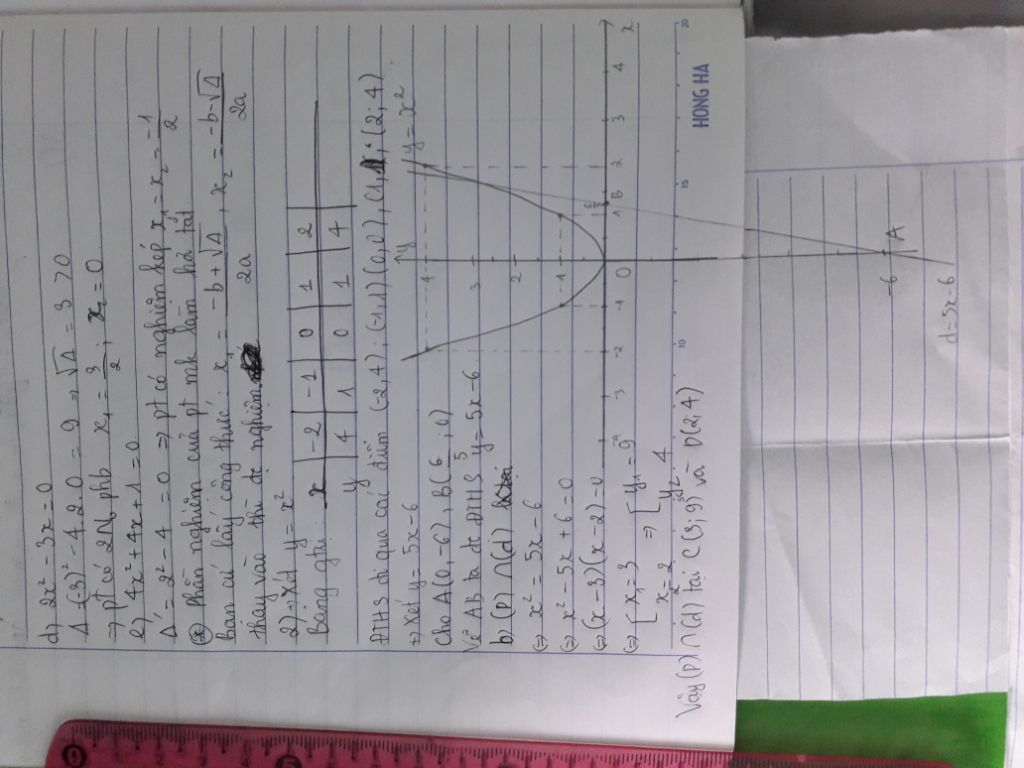 d) 2x² - 3x = 0
Δ = (-3)² - 4.2.0 = 9 ⇒ √Δ = 3 > 0
→ pt có 2N phb x₁ = 3/2 ; x₂ = 0
e) 4x² + 4x + 1 = 0
Δ' = 2² - 4 = 0 ⇒ pt có nghiệm kép x₁ = x₂ = -1/2
(*) Phần nghiệm của pt mk làm hơi tắt
bạn cứ lấy công thức: x₁ = (-b + √Δ)/2a , x₂ = (-b - √Δ)/2a
thay vào thì đc nghiệm
2) Xét y = x²
Bảng gtrị:
x | -2 | -1 | 0 | 1 | 2
y | 4 | 1 | 0 | 1 | 4
ĐTHS đi qua các điểm (-2,4); (-1,1) (0,0), (1,1); (2;4)
→ Xét y = 5x - 6
Cho A(0,-6), B(6/5;0)
Vẽ AB ta đc ĐTHS y = 5x - 6
b) (P) ∩ (d)
⇔ x² = 5x - 6
⇔ x² - 5x + 6 = 0
⇔ (x - 3)(x - 2) = 0
⇔ [ x₁ = 3 ⇒ [ y₁ = 9
x₂ = 2 y₂ = 4
Vậy (P) ∩ (d) tại C(3;9) và D(2;4)
y
y = x²
4
3
2
1
-3
-2
-1
0
1
B
2
3
4
x
-6
A
d = 5x - 6
10
15
20
HONG HA